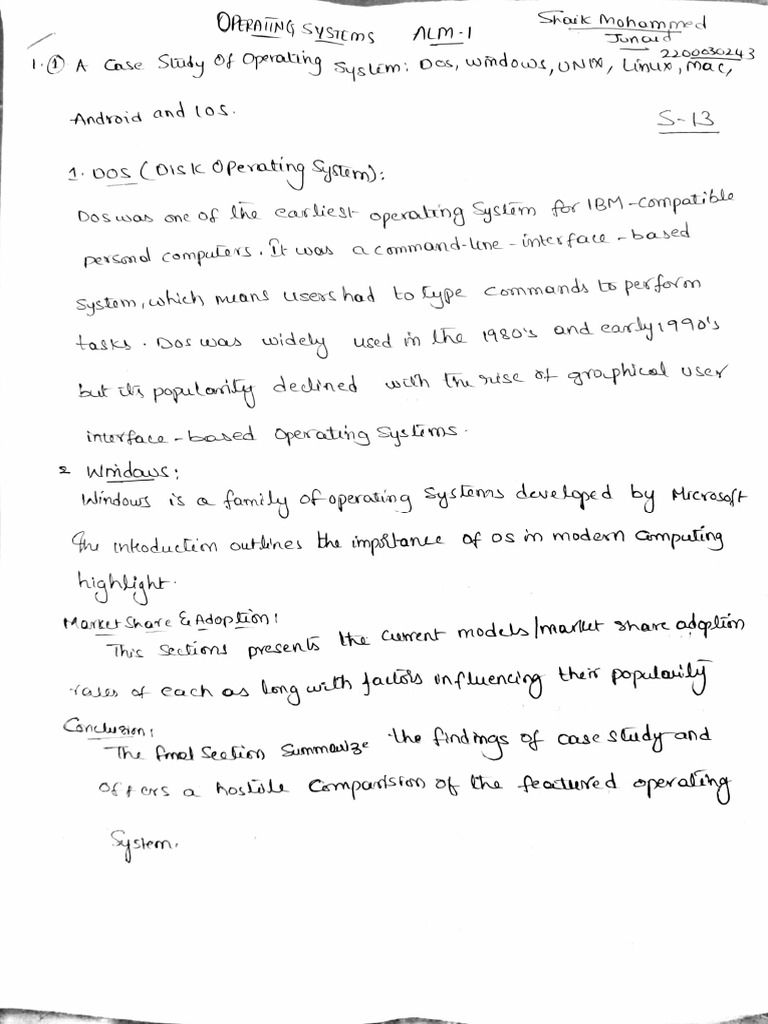 OPERATING SYSTEMS ALM-1
Shaik Mohammed
Junaid
2200030243
1. ① A Case Study Of Operating System: Dos, Windows, UNIX, Linux, Mac,
Android and IOS.
S-13
1. DOS (DISK Operating System):
Dos was one of the earliest operating System for IBM-compatible
personal computers. It was a command-line-interface-based
System, which means users had to type commands to perform
tasks. Dos was widely used in the 1980's and early 1990's
but its popularity declined with the rise of graphical user
interface-based Operating Systems.
2 Windows:
Windows is a family of operating Systems developed by Microsoft
The introduction outlines the importance of OS in modern Computing
highlight.
Market Share & Adoption:
This sections presents the current models/market share adoption
rates of each as long with factors influencing their popularity
Conclusion:
The final Section Summarize the findings of case study and
offers a hostile Comparision of the featured operating
System.